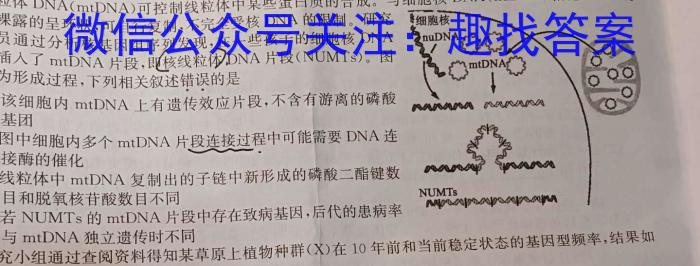 粒体 DNA(mtDNA)可控制线粒体中某些蛋白质的合成。
裸露的呈
微信公众号关注：趣找答案
员通过分
插入了 mtDNA 片段,即核线粒体DNA片段(NUMTs)。图
为形成过程,下列相关叙述错误的是
该细胞内 mtDNA 上有遗传效应片段,不含有游离的磷酸
基团
图中细胞内多个 mtDNA 片段连接过程中可能需要 DNA 连
接酶的催化
线粒体中 mtDNA 复制出的子链中新形成的磷酸二酯键数
目和脱氧核苷酸数目不同
若 NUMTs 的 mtDNA 片段中存在致病基因,后代的患病率
与 mtDNA 独立遗传时不同
究小组通过查阅资料得知某草原上植物种群(X)在 10 年前和当前稳定状态的基因型频率,结果如
细胞核
nuDNA
mtDNA
NUMTs